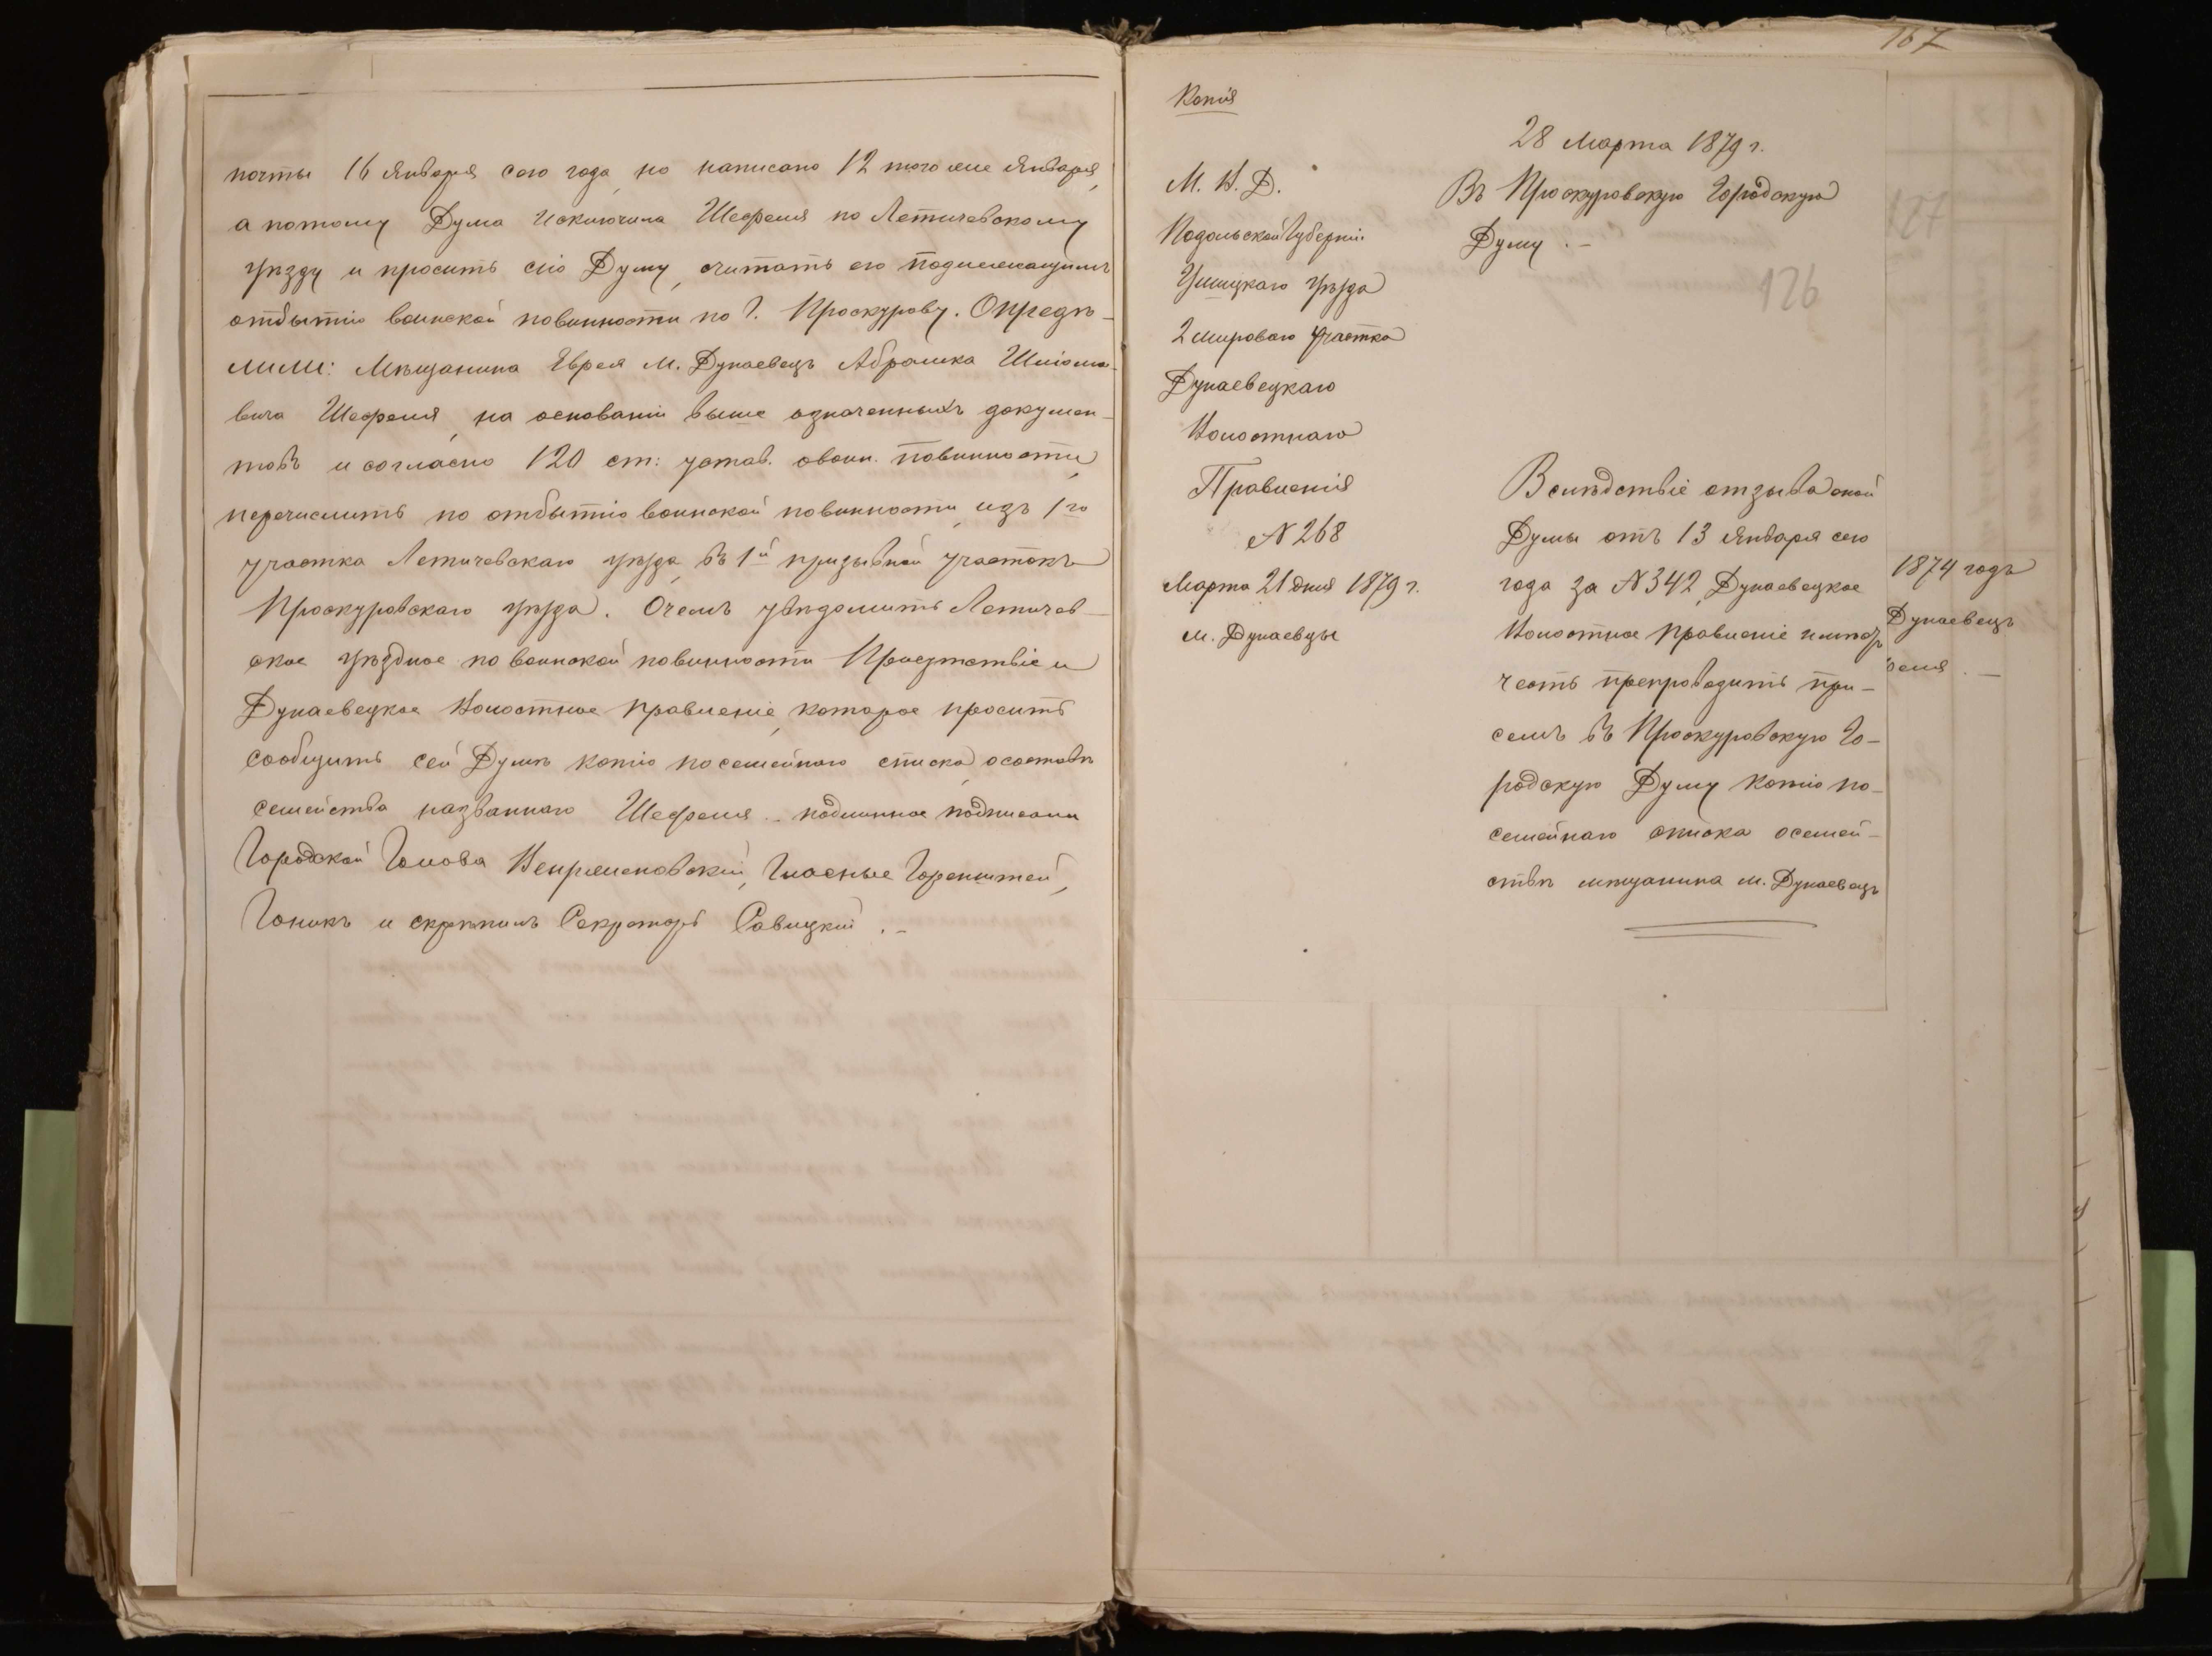 почты 16 Января сего года, но написано 12 того же Января,
а потому Дума исключила Шефтеля по Летичевскому
уѣзду и проситъ сію Думу, считать его подлежащимъ
отбытію воинской повинности по г. Проскурову. Опредѣ-
лили: Мѣщанина Еврея м. Дунаевецъ Абрашка Шліомо-
вича, на основаніи выше означенныхъ докумен-
товъ и согласно 120 ст: устав. о воин. повинности,
перечислить по отбытію воинской повинности, изъ 1го
участка Летичевскаго уѣзда, въ 1й призывной участокъ
Проскуровскаго уѣзда. О чемъ увѣдомить Летичев-
ское уѣздное по воинской повинности Присутствіе и
Дунаевецкое Волостное Правленіе, которое проситъ
сообщить сей Думѣ копію посемейнаго списка, о составѣ
семейства названнаго подлинное подписали
Городской Голова Гласные Горенштей,
и скрѣпилъ Секретарь Савицкій .–
167
Копія
28 Марта 1879 г.
М. В. Д.
Подольской Губерніи
Ушицкаго уѣзда
2 мироваго участка
Дунаевецкаго
Волостнаго
Правленія
№ 268
Марта 21 дня 1879 г.
м. Дунаевцы
Въ Проскуровскую Городскую
Думу .–
126
Вслѣдствіе отзыва оной
Думы отъ 13 Января сего
года за № 342, Дунаевецкое
Волостное Правленіе имѣетъ
честь препроводить при-
семъ въ Проскуровскую Го-
родскую Думу копію по-
семейнаго списка о семей-
ствѣ мѣщанина м. Дунаевецъ
1874 годъ
Дунаевецъ